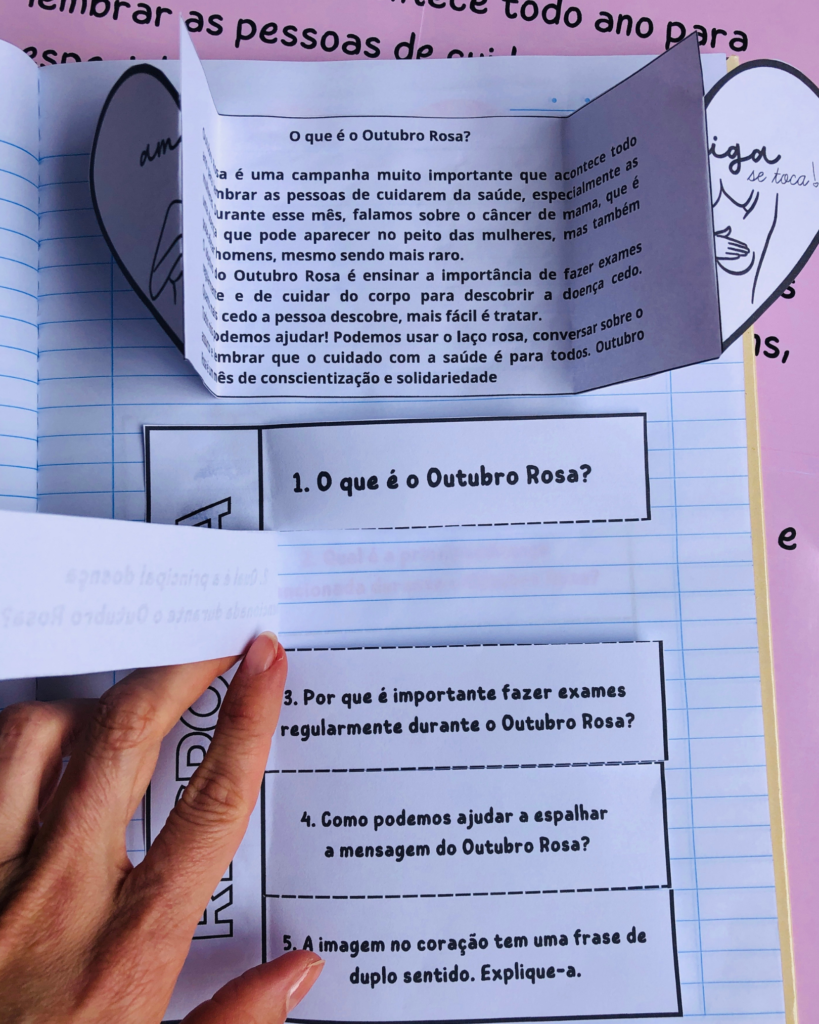 lembrar as pessoas de
tece todo ano para
am
iga
se toca!
O que é o Outubro Rosa?
a é uma campanha muito importante que acontece todo
mbrar as pessoas de cuidarem da saúde, especialmente as
urante esse mês, falamos sobre o câncer de mama, que é
que pode aparecer no peito das mulheres, mas também
homens, mesmo sendo mais raro.
o Outubro Rosa é ensinar a importância de fazer exames
e e de cuidar do corpo para descobrir a doença cedo.
cedo a pessoa descobre, mais fácil é tratar.
odemos ajudar! Podemos usar o laço rosa, conversar sobre o
embrar que o cuidado com a saúde é para todos. Outubro
ês de conscientização e solidariedade
s
ns,
e
1. O que é o Outubro Rosa?
3. Por que é importante fazer exames
regularmente durante o Outubro Rosa?
4. Como podemos ajudar a espalhar
a mensagem do Outubro Rosa?
5. A imagem no coração tem uma frase de
duplo sentido. Explique-a.